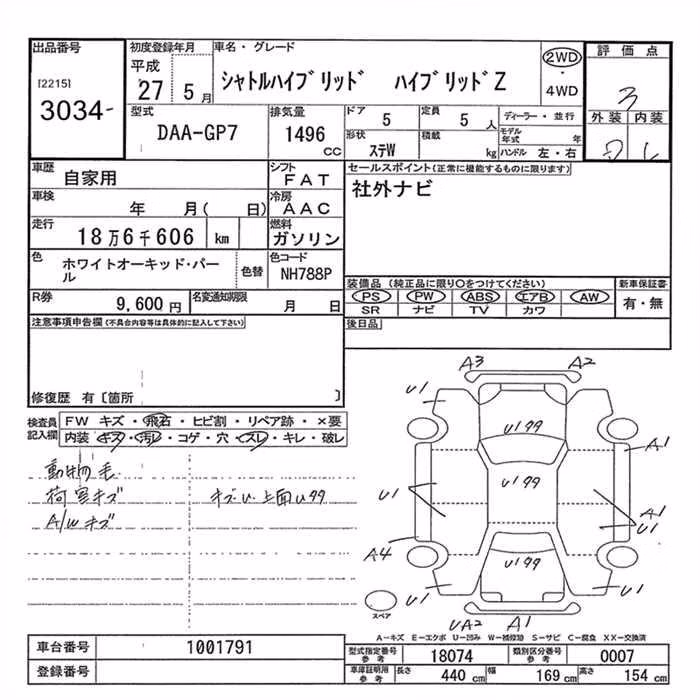 出品番号
[2215]
3034-
初度登録年月
平成
27 5月
車名・グレード
シャトルハイブリッド ハイブリッドZ
2WD
・
4WD
評価点
3
外装 内装
型式
DAA-GP7
排気量
1496
CC
ドア
5
定員
5 人
形状
ステW
積載
kg
ディーラー・並行
モデル年式 年
ハンドル 左・右
車歴
自家用
シフト
FAT
車検
年 月( 日)
冷房
AAC
走行
18万6千606 km
燃料
ガソリン
色
ホワイトオーキッド・パール
色替
色コード
NH788P
R券
9,600円
名変通知期限
月 日
セールスポイント(正常に機能するものに限ります)
社外ナビ
装備品(純正品に限り○をつけてください)
PS PW ABS エアB AW
SR ナビ TV カワ
新車保証書
有・無
後日品
注意事項申告欄(不具合内容等は具体的に記入して下さい)
修復歴 有〔箇所 〕
検査員記入欄
FW キズ・飛石・ヒビ割・リペア跡・×要
内装・キズ・汚レ・コゲ・穴・ズレ・キレ・破レ
動物毛
荷室キズ キズU 上面U99
A/Wキズ
A3 A2
U1
U199
A1
U199
U1
A1
U1
A4
U199
U1 U1
スペア
UA2 A1
A-キズ E-エクボ U-凹み W-補修跡 S-サビ C-腐食 XX-交換済
車台番号
1001791
登録番号
型式指定番号
参考
18074
類別区分番号
参考
0007
車庫証明用
参考
長さ
440 cm
幅
169 cm
高さ
154 cm